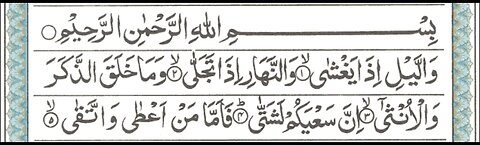 بِسْمِ اللهِ الرَّحْمٰنِ الرَّحِيْمِ ○
وَالَّيْلِ اِذَا يَغْشٰى ۙ﴿۱﴾ وَالنَّهَارِ اِذَا تَجَلّٰى ۙ﴿۲﴾ وَمَا خَلَقَ الذَّكَرَ
وَالْاُنْثٰۤى ۙ﴿۳﴾ اِنَّ سَعْيَكُمْ لَشَتّٰى ؕ﴿۴﴾ فَاَمَّا مَنْ اَعْطٰى وَاتَّقٰى ۙ﴿۵﴾